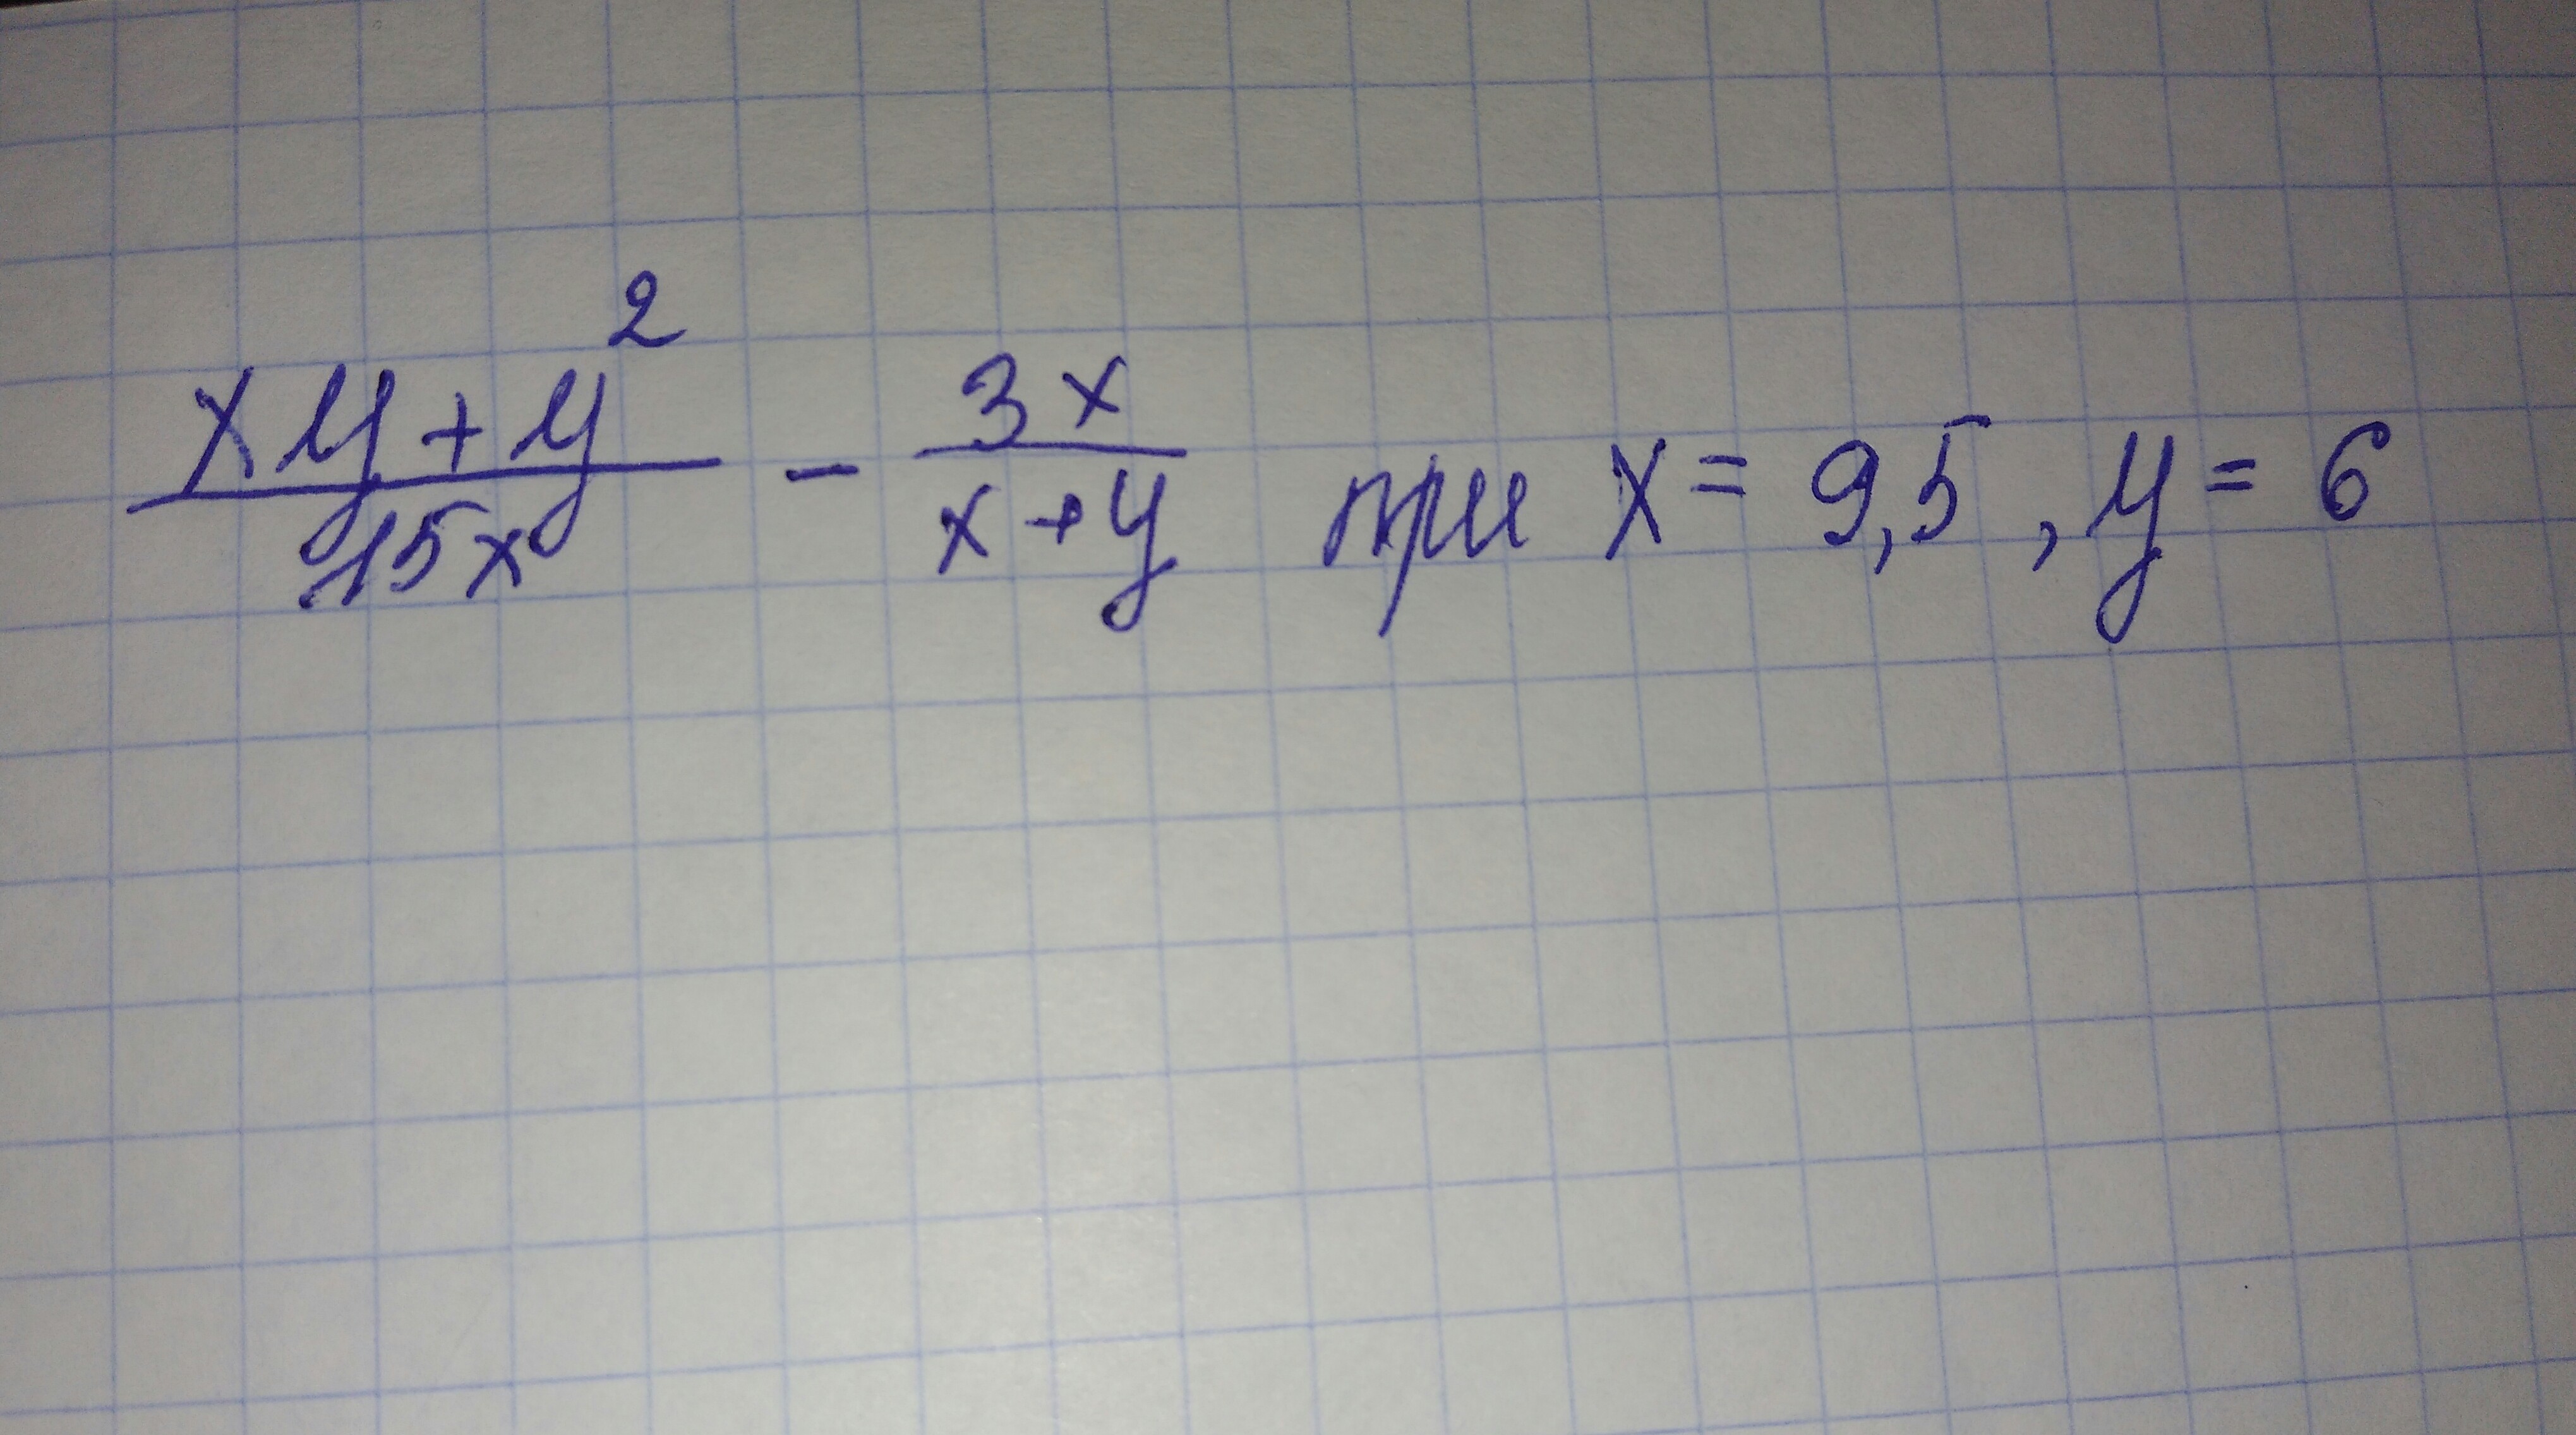 (xy+y²)/(15x) - (3x)/(x+y) при x = 9,5, y = 6